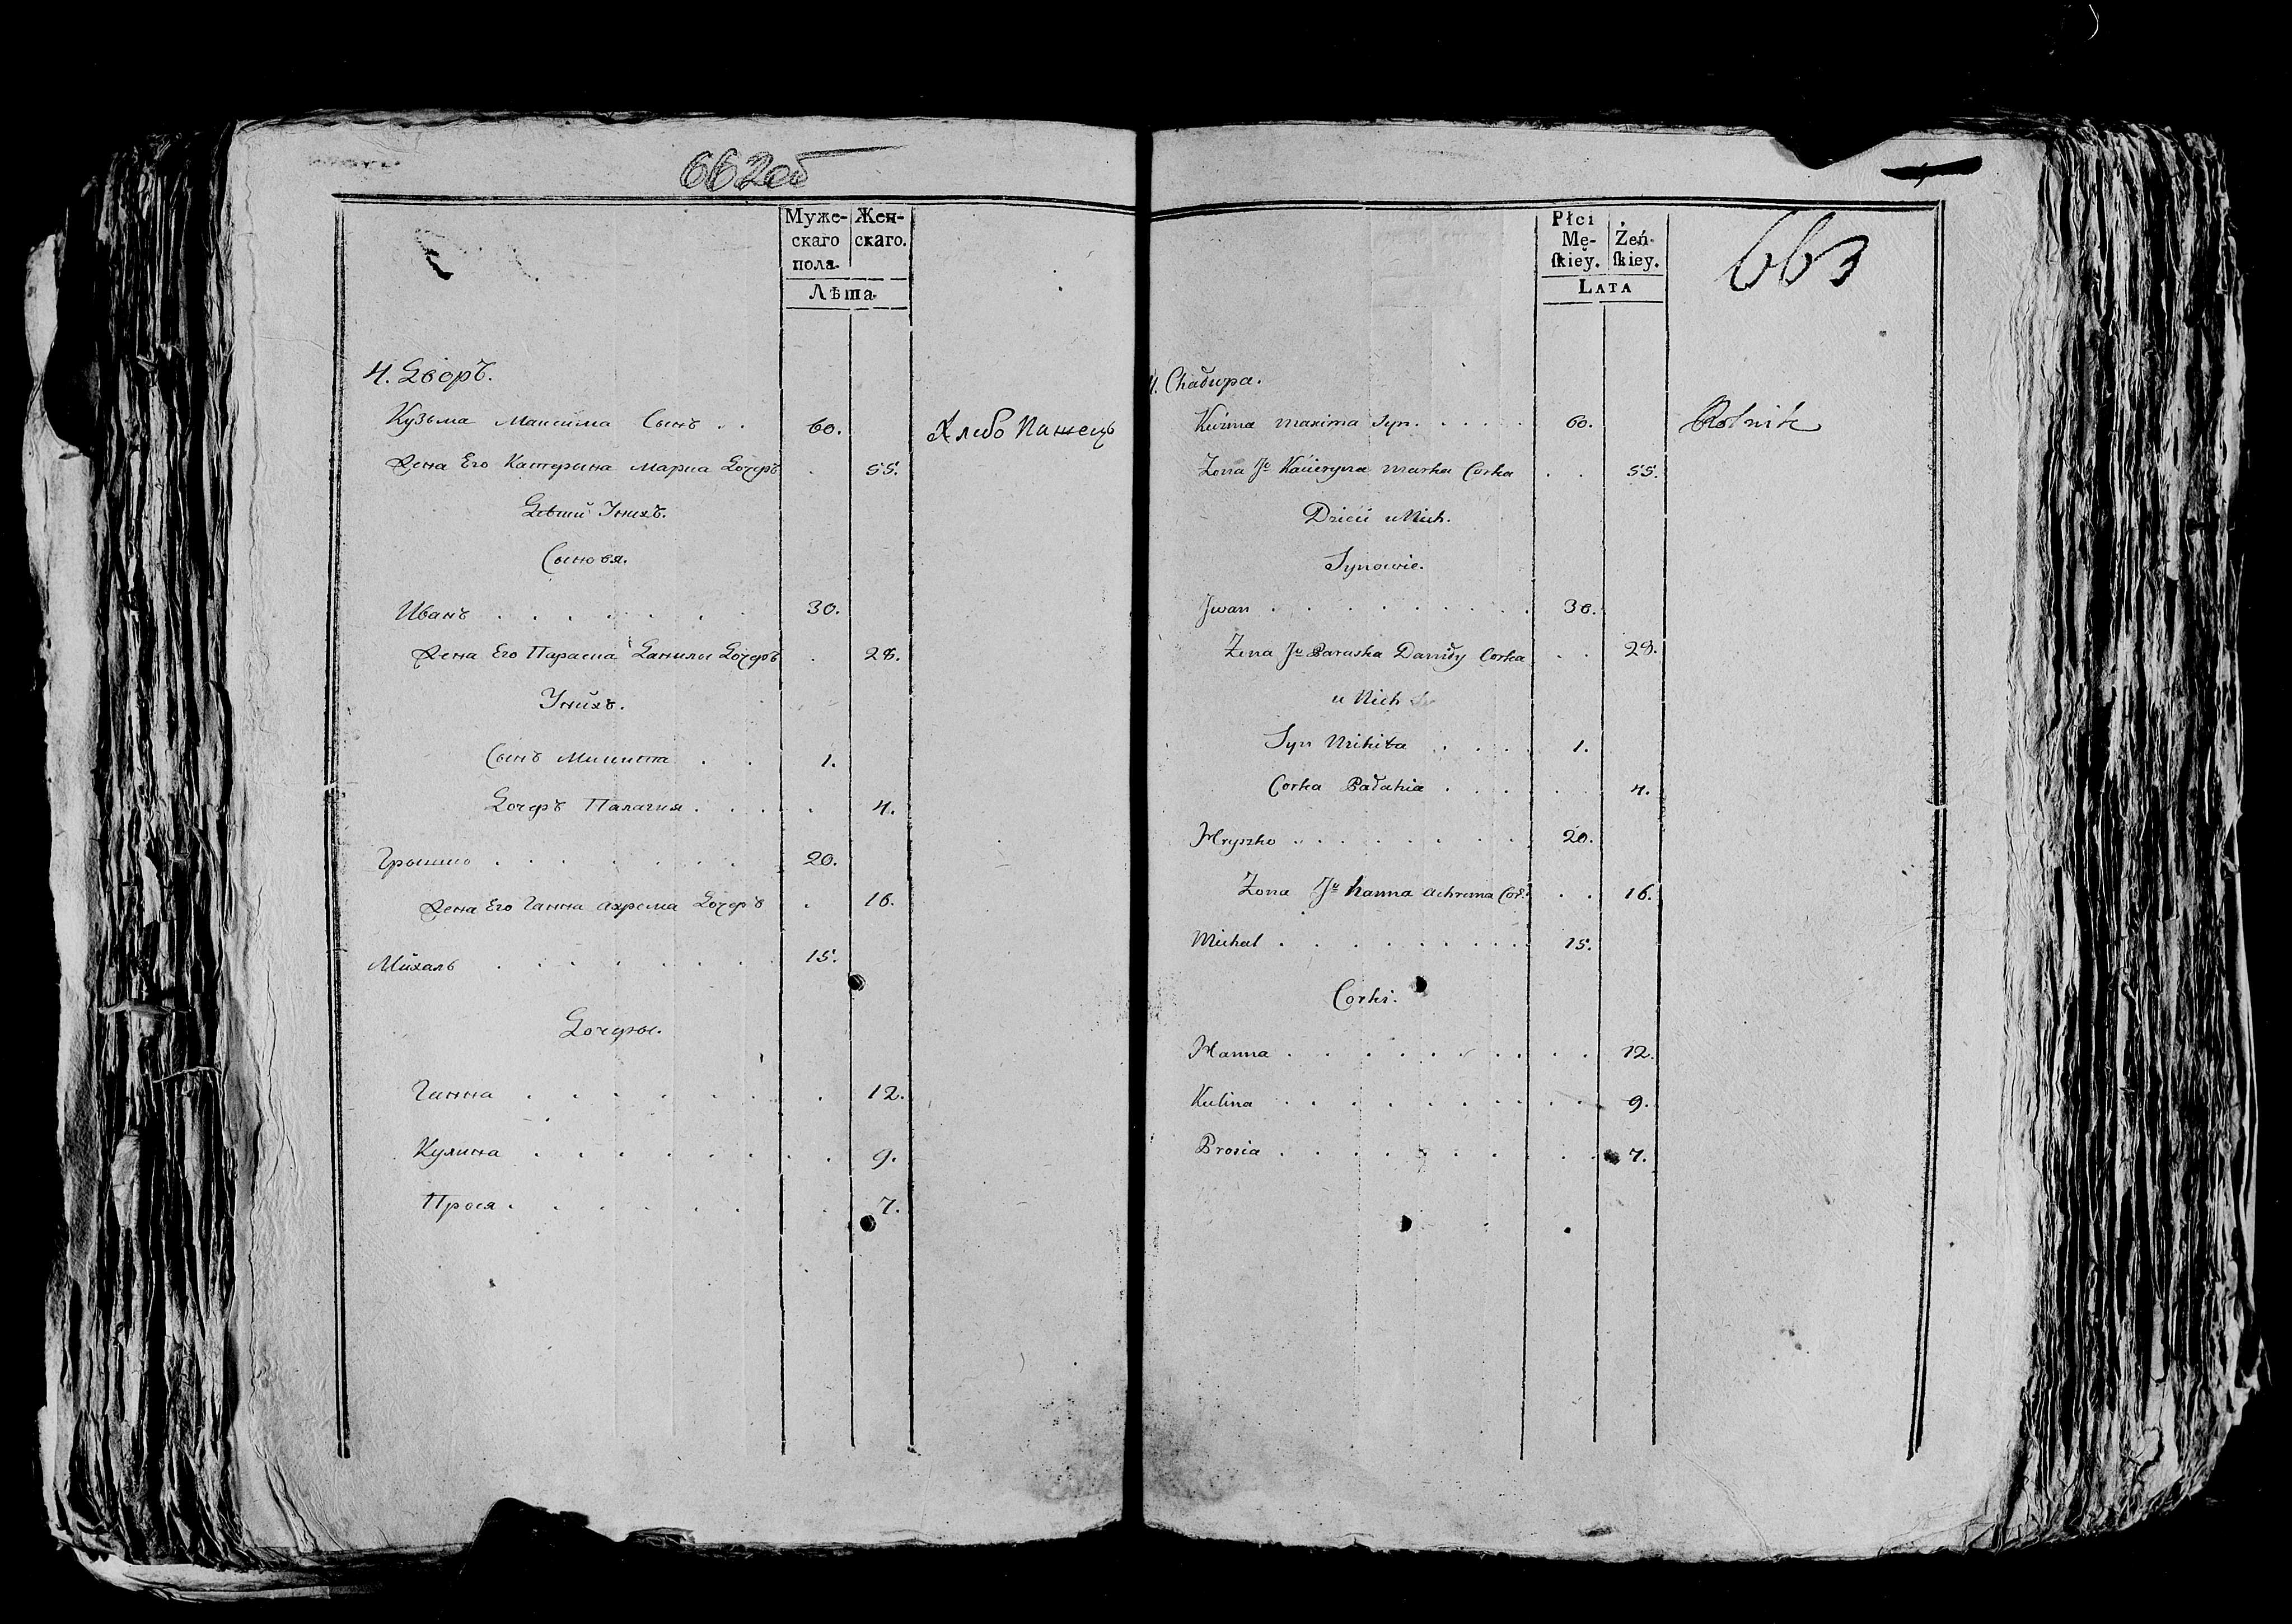 662об
Муже- Жен-
скаго скаго.
пола.
Лѣта.
4. Дворъ.
Кузьма Максима Сынъ . . 60. Хлебо Пашецъ
Жена Его Катерына Марка Дочеръ . 55.
Дѣтй Унихъ.
Сыновя.
Иванъ . . . . . . . 30.
Жена Его Параска Данилы Дочеръ . 28.
Унйхъ.
Сынъ Микита . . 1.
Дочеръ Палагия . . . . 4.
Грышко . . . . . . . 20.
Жена Его Ганна Ахрема Дочеръ . 16.
Мйхалъ . . . . . . . . 15.
Дочеры.
Ганна . . . . . . . . 12.
Кулина . . . . . . . . 9.
Прося . . . . . . . . 7.
663
Płci
Mę- Żeń-
ſkiey. ſkiey.
LATA
4. Chałupa.
Kuźma Maxima Syn. . . . . 60. Rolnik
Zona Jo Kacieryna Marka Corka . . 55.
Dzieci u Nich.
Synowie.
Jwan . . . . . . . . . 30.
Zona Jo Paraska Daniły Corka . . 28.
u Nich
Syn Mikita . . . . 1.
Corka Pałahia . . . . 4.
Hryszko . . . . . . . . 20.
Zona Jo hanna Achrema Cor: . . 16.
Michał . . . . . . . . 15.
Corki.
Hanna . . . . . . . . . 12.
Kulina . . . . . . . . . 9.
Prosia . . . . . . . . . 7.